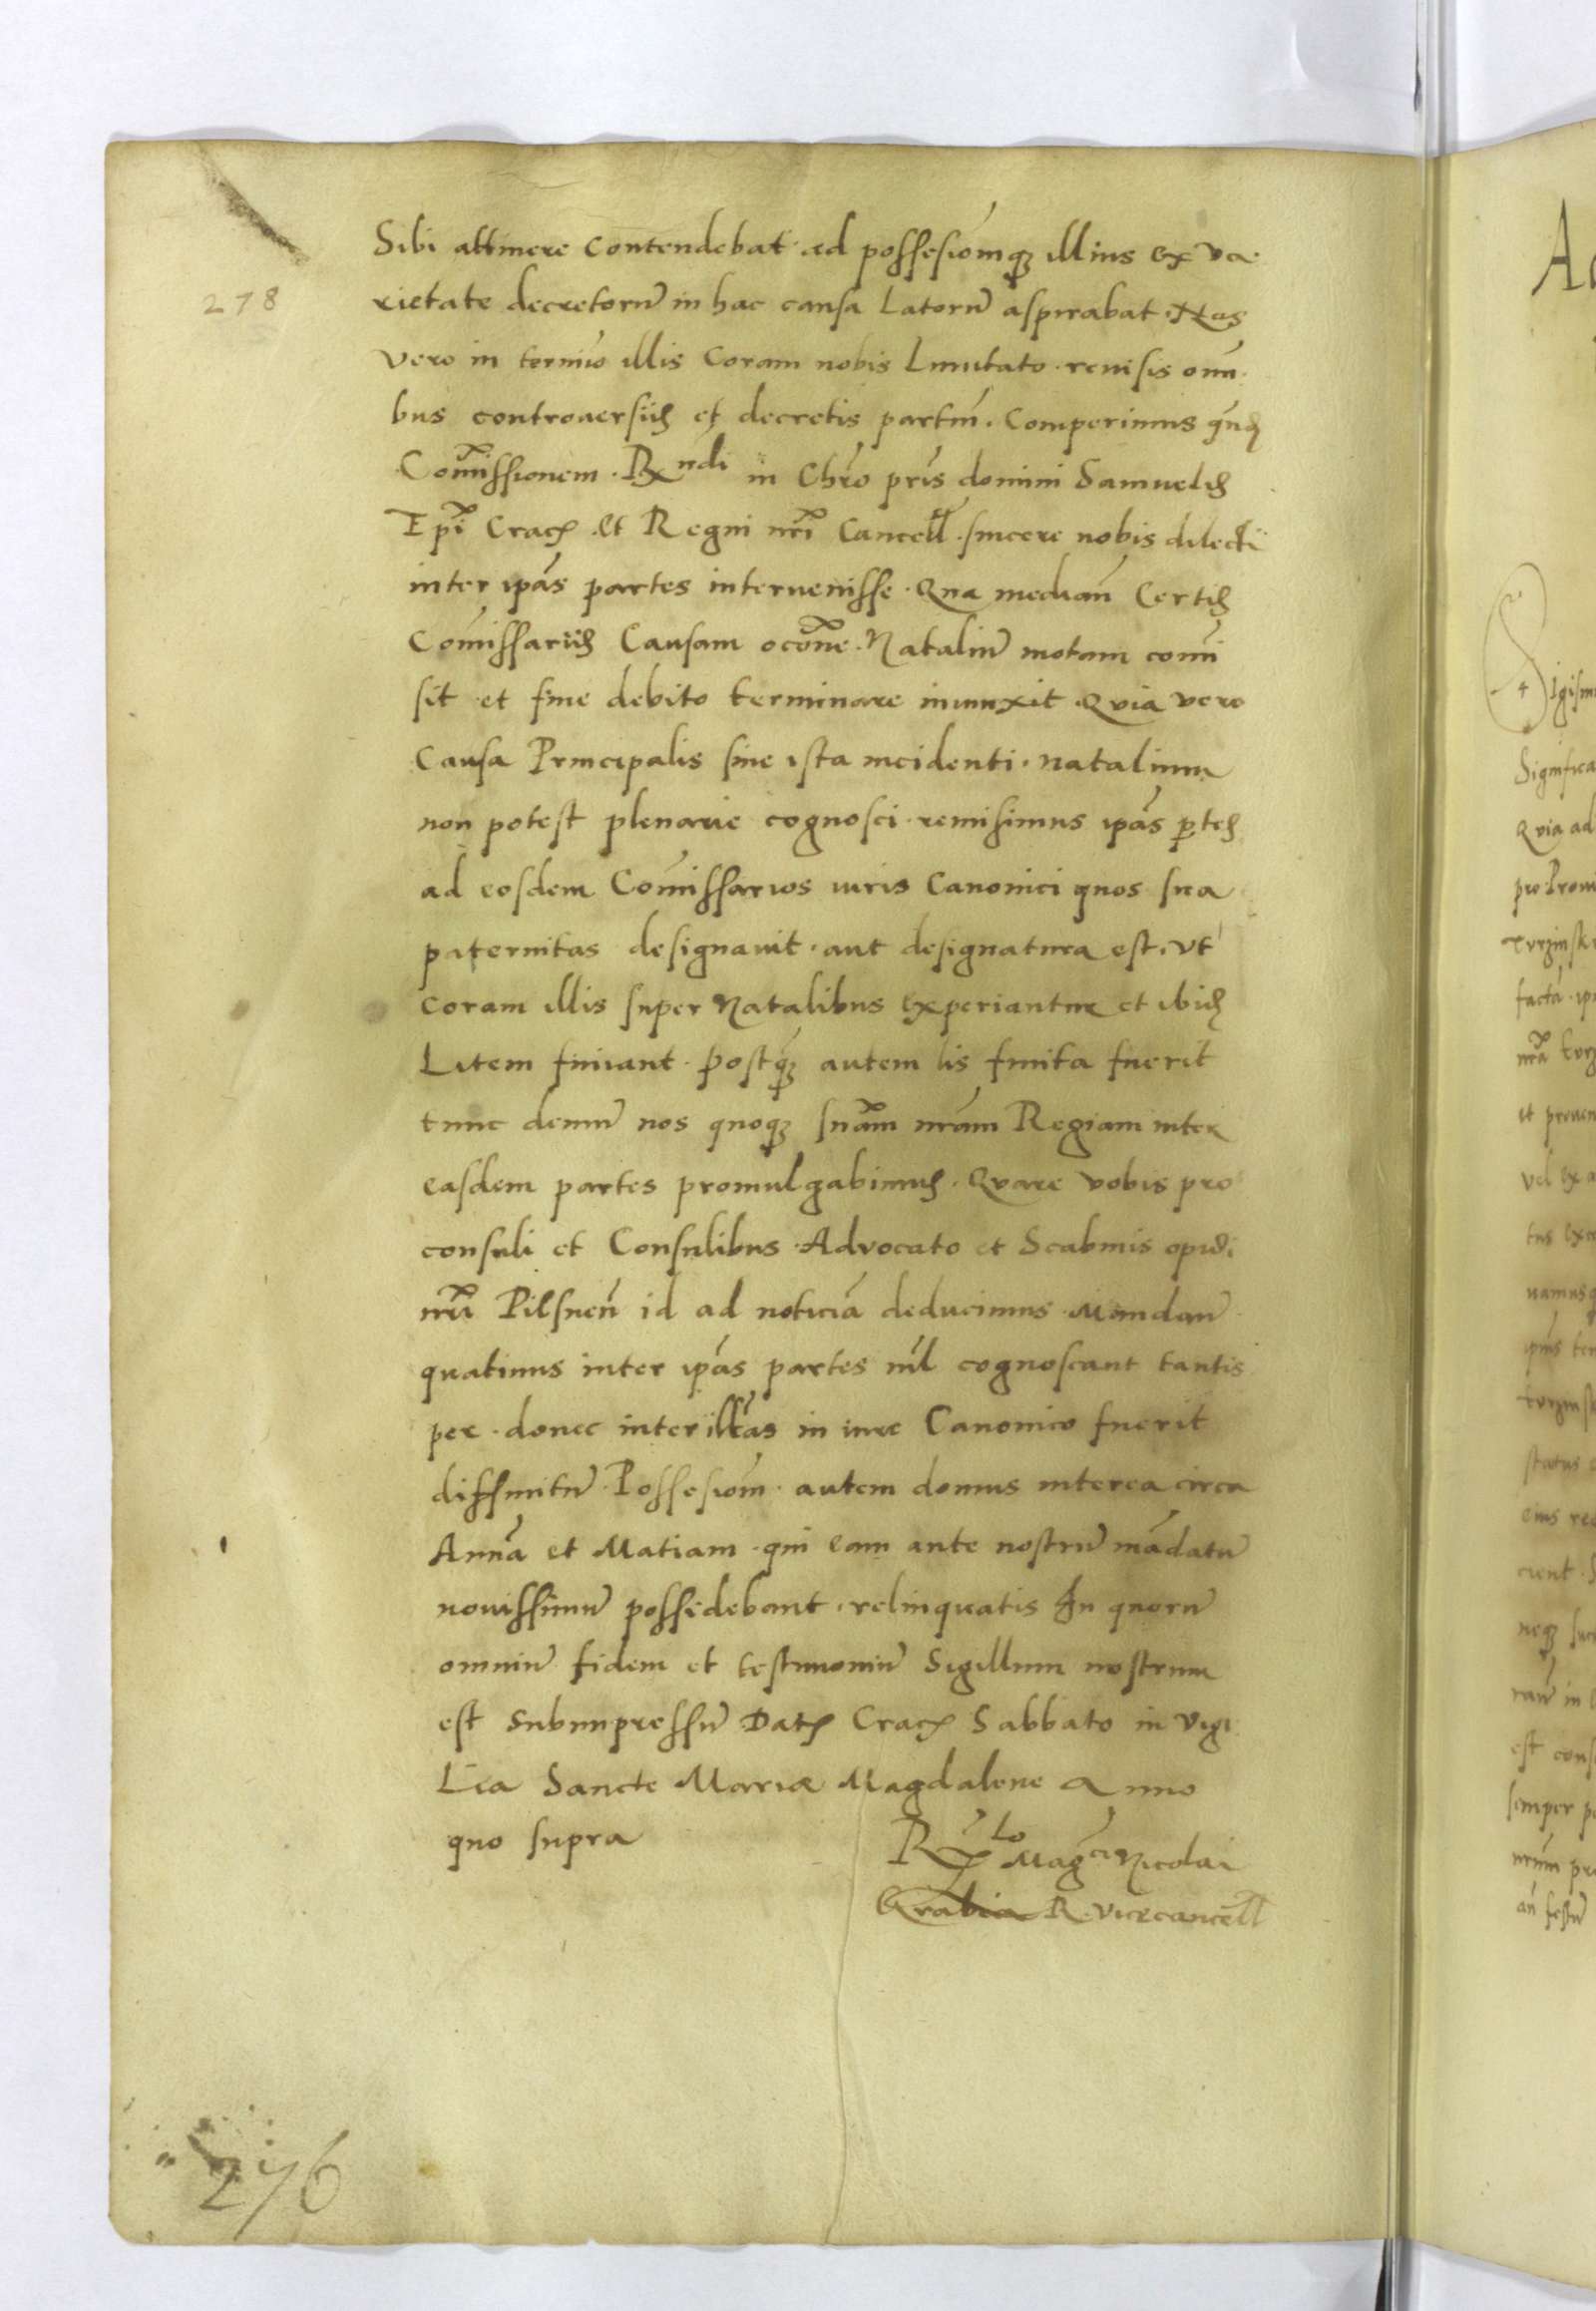 278
Sibi attinere contendebat ad possesiom̄q illius ex va
rietate decretorū in hac causa Latorū aspirabat. Nos
vero in termīo illis coram nobis Limitato. revisis omī
bus controversiis et decretis partiū. comperimus
Com̄issionem. Rndi in Chrō pris domini Samuelis
Epi Crac. et Regni nrī Cancell. sincere nobis dilecti
inter ipas partes intervenisse. Qua median̄ Certis
Com̄issariis Causam occōne. Nataliū motam comī
sit et fine debito terminare iniunxit. Quia vero
Causa Principalis sine ista incidenti. natalium
non potest plenarie cognosci remisimus ipas ptes
ad eosdem Com̄issarios iuris Canonici quos sua
paternitas designavit. aut designatura est. Ut
coram illis super Natalibus experiantur et ibid
Litem finiant. Postq autem lis finita fuerit
tunc demū nos quoq snām nrām Regiam inter
easdem partes promulgabimus. Quare vobis pro
consuli et Consulibus Advocato et Scabinis opidi
nrī Pilsnen̄ id ad noticiā deducimus Mandan̄
quatinus inter ipas partes nil cognoscant tantis
per. donec inter illas in iure Canonico fuerit
diffinitū. Possesiom̄. autem domus interea circa
Annā et Matiam. qui eam ante nostrū mādatū
novissimū possedebant. relinquatis In quorū
omniū fidem et testimoniū Sigillum nostrum
est subimpressū Dat Crac Sabbato in vigi
Lia Sancte Mariæ Magdalene Anno
quo supra
Rlo Magci Nicolai
Grabia R. vicecancell
276